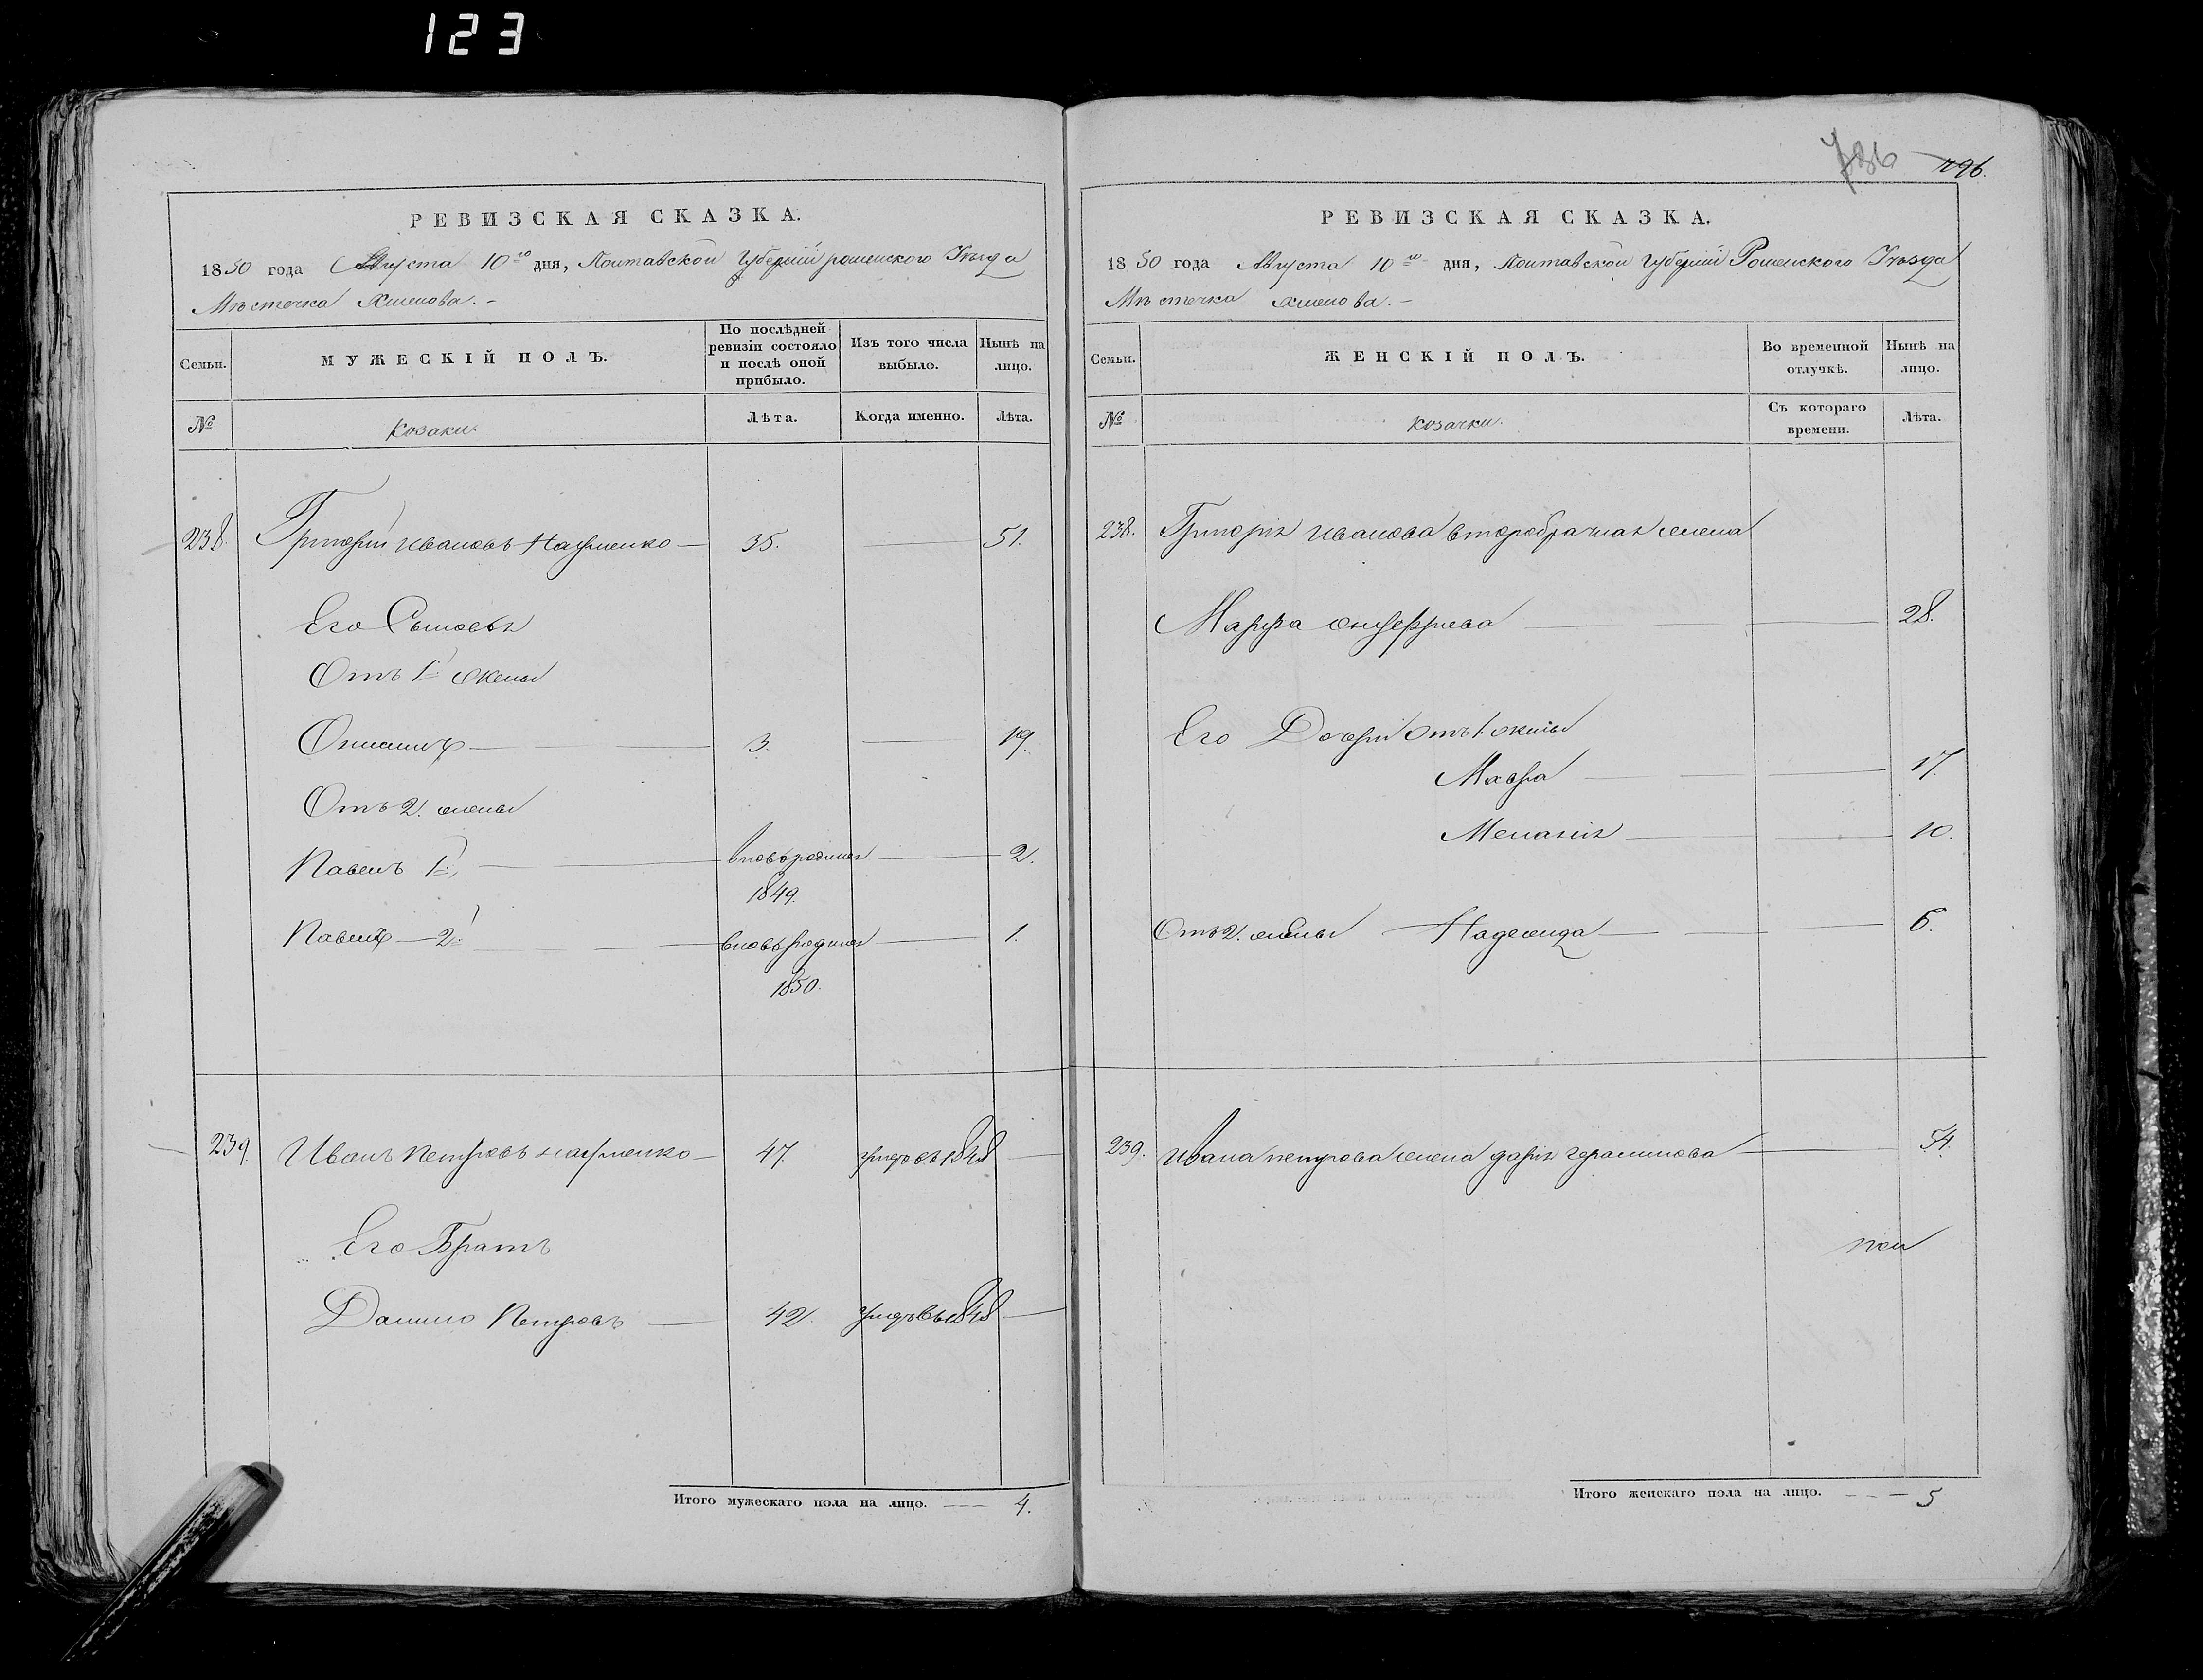 123
736 796.
РЕВИЗСКАЯ СКАЗКА.
1850 года Августа 10го дня, Полтавской Губернии роменского Уезда
Мѣстечка Хмелова. -
Семьи. МУЖЕСКІЙ ПОЛЪ. По послѣдней ревизіи состояло и послѣ оной прибыло. Изъ того числа выбыло. Нынѣ на лицо.
№ Козаки. Лѣта. Когда именно. Лѣта.
238. Григорий Ивановъ Науменко — 35. — 51.
Его Сыновья
Отъ 1й жены
Онисимъ — 3. — 19.
Отъ 2. жены
Павелъ 1й, — вновьродился — 2.
1849.
Павелъ — 2й — вновьродился — 1.
1850.
239. Иванъ Петровъ Науменко — 47 умеръ въ 1848 —
Его Братъ
Данило Петровъ — 42. умеръ въ 1848 —
Итого мужескаго пола на лицо. — 4.
РЕВИЗСКАЯ СКАЗКА.
1850 года Августа 10го дня, Полтавской Губернии Роменского Уезда
Мѣстечка Хмелова. -
Семьи. ЖЕНСКІЙ ПОЛЪ. Во временной отлучкѣ. Нынѣ на лицо.
№ Козачки. Съ котораго времени. Лѣта.
238. Григорія Иванова второбрачная жена
Марфа Онуфриева — 28.
Его Дочери отъ 1. жены
Мавра — 17.
Мелания — 10.
Отъ 2. жены — Надежда — 6.
239. Ивана петрова жена дарья герасимова — 54.
Итого женскаго пола на лицо. — 5